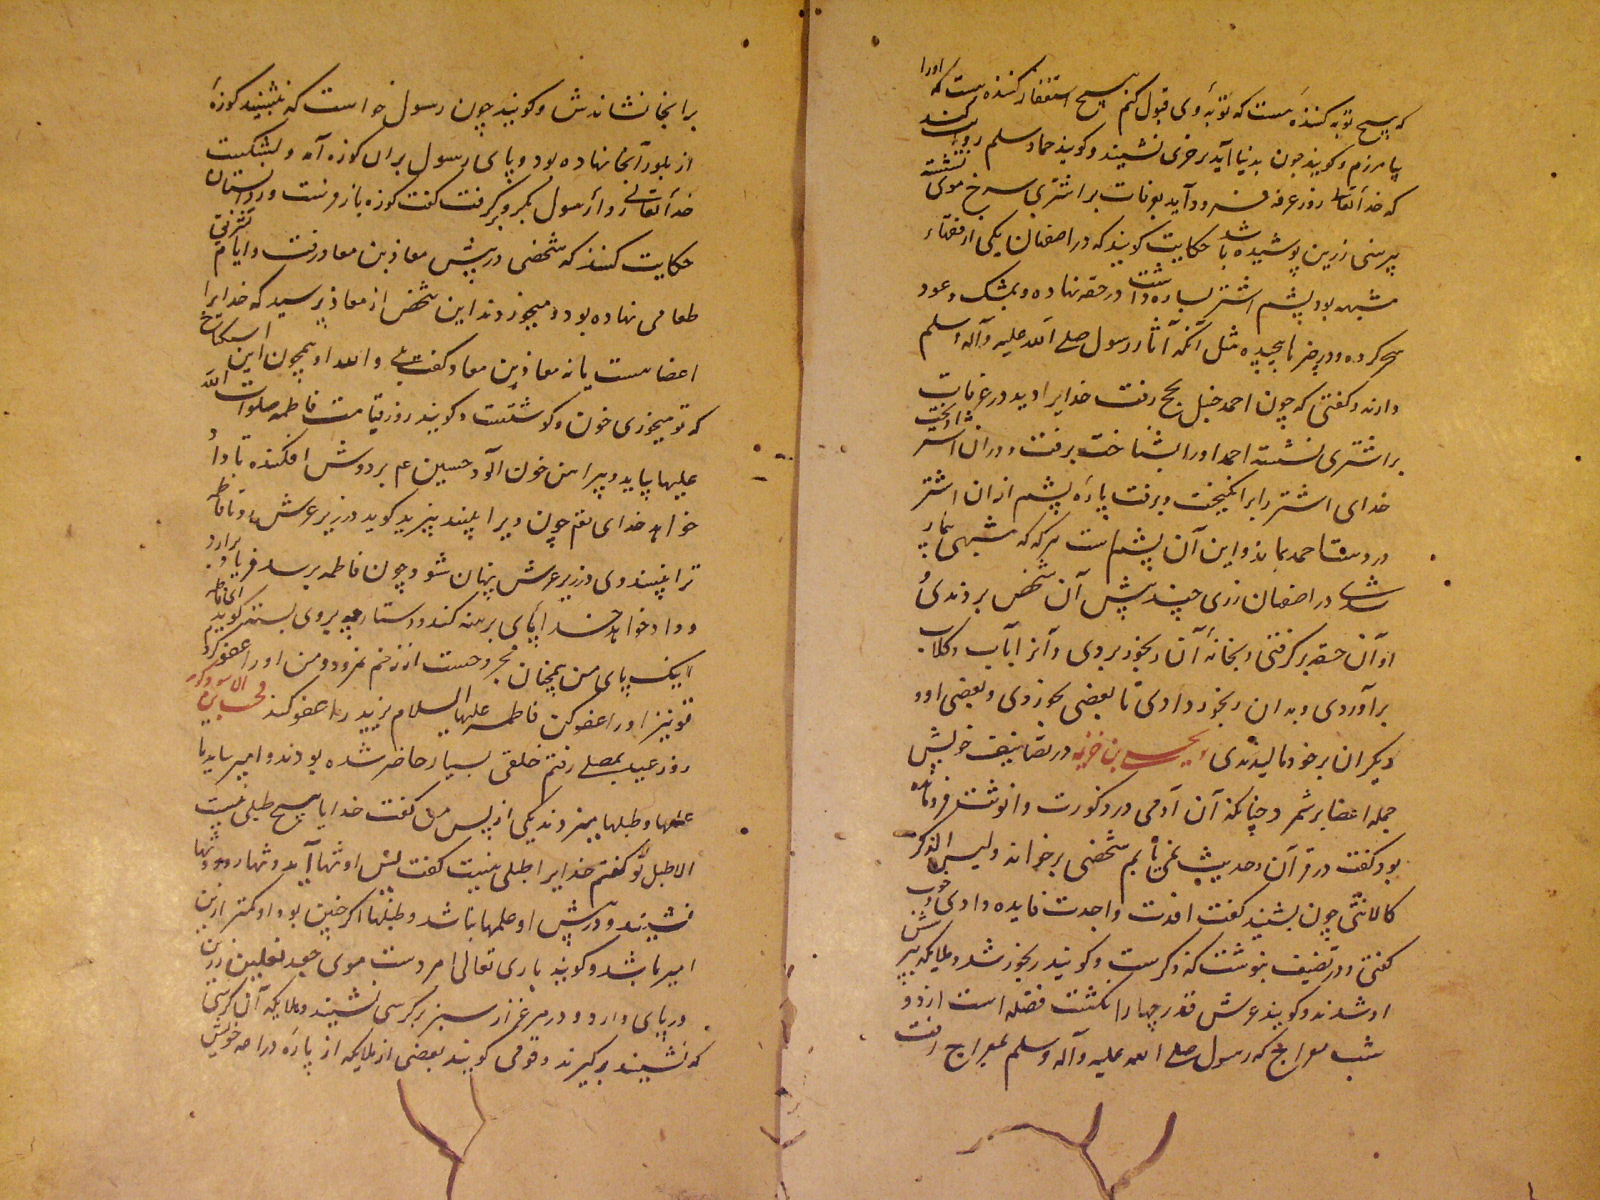 که هیچ توبه کننده هست که توبهٔ وی قبول کنم هیچ استغفار کننده هست که اورا
بیامرزم و کویند چون بدنیا آید بر خری نشیند و کویند حماد سلمه روایت کند
که خدا تعالی روز عرفه فرود آید بعرفات بر اشتری سرخ موی نشسته
پیرهنی زرین پوشیده باشد حکایت کویند که در اصفهان یکی از فقهاء
مشبهه بود پشم اشتر پاره داشت در حقه نهاده و بمشک و عود
کرده و در پیچیده مثل آنکه آثار رسول صلی الله علیه و آله وسلم
دارند و کفتی که چون احمد حنبل بحج رفت خدایرا دید در عرفات
بر اشتری نشسته احمد اورا بشناخت برفت و در ان اشتر
خدای اشتر را برانکیخت و برفت پاره پشم از ان اشتر
در دست احمد بماند و این آن پشم است هر که که مشبهی بیمار
شدی در اصفهان زری چند پیش آن شخص بردندی
او آن حقه بر کرفتی و بخانهٔ آن رنجور بردی و آنرا بآب و کلاب
برآوردی و بدان رنجور دادی تا بعضی بخوردی و بعضی او و
دیکران بر خود مالیدندی بن خزیمه در تصانیف خویش
جمله اعضا برشمرد چنانکه آن آدمی در ذکورت و انوثت فرو ماند
بود کفت در قرآن و حدیث نمی یابم شخصی بر خواند ولیس الذکر
کالانثی چون بشنید کفت افدت واجدت فایده دادی و خوب
کفتی و در تصنیف بنوشت که ذکرست و کویند رنجور شد و ملایکه بپرسش
او شدند و کویند عرش قدر چهار انکشت فضله است ازو و
شب معراج که رسول صلی الله علیه و آله وسلم بمعراج رفت
برانجا نشاندش و کویند چون رسول خواست که بنشیند کوزهٔ
از بلور آنجا نهاده بود و پای رسول بران کوزه آمد و بشکست
خدا تعالی ردا رسول بکرو بر کرفت کفت کوزه باز فرست و ردا بستان
حکایت کنند که شخصی در پیش معاذ بن معاذ رفت و ایام تشریق
طعامی نهاده بود و میخوردند این شخص از معاذ پرسید که خدایرا
اعضا هست یا نه معاذ بن معاذ کفت بلی والله او همچون این
که تو میخوری خون و کوشتست و کویند روز قیامت فاطمه صلوات الله
علیها بیاید و پیراهن خون آلود حسین عم بر دوش افکنده تا داد
خواهد خدای تعم چون ویرا بیند یزید کوید در زیر عرش رو تا فاطمه
ترا نبیند وی در زیر عرش پنهان شود چون فاطمه برسد فریاد برآرد
و داد خواهد خدا پای برهنه کند و دستارچه بروی بسته کوید ای فاطمه
اینک پای من همچنان مجروحست از زخم نمرود و من اورا عفو کردم
تو نیز اورا عفو کن فاطمه علیها السلام یزید را عفو کند
روز عید بمصلی رفتم خلقی بسیار حاضر شده بودند و امیر بیامد با
علمها و طبلها میزدند یکی از پس من کفت خدایا هیچ طبلی نیست
الا طبل تو کفتم خدایرا طبلی نیست کفت پس او تنها آید و تنها رود و تنها
نشیند و در پیش او علمها نباشد و طبلها اکر چنین بود او کمتر ازین
امیر باشد و کویند باری تعالی امردست موی جعد نعلین زرین
در پای دارد و در مرغزار سبز بر کرسی نشیند و ملایکه آن کرسی
که نشیند برکیرند و قومی کویند بعضی از ملایکه از پاره در احه خویش